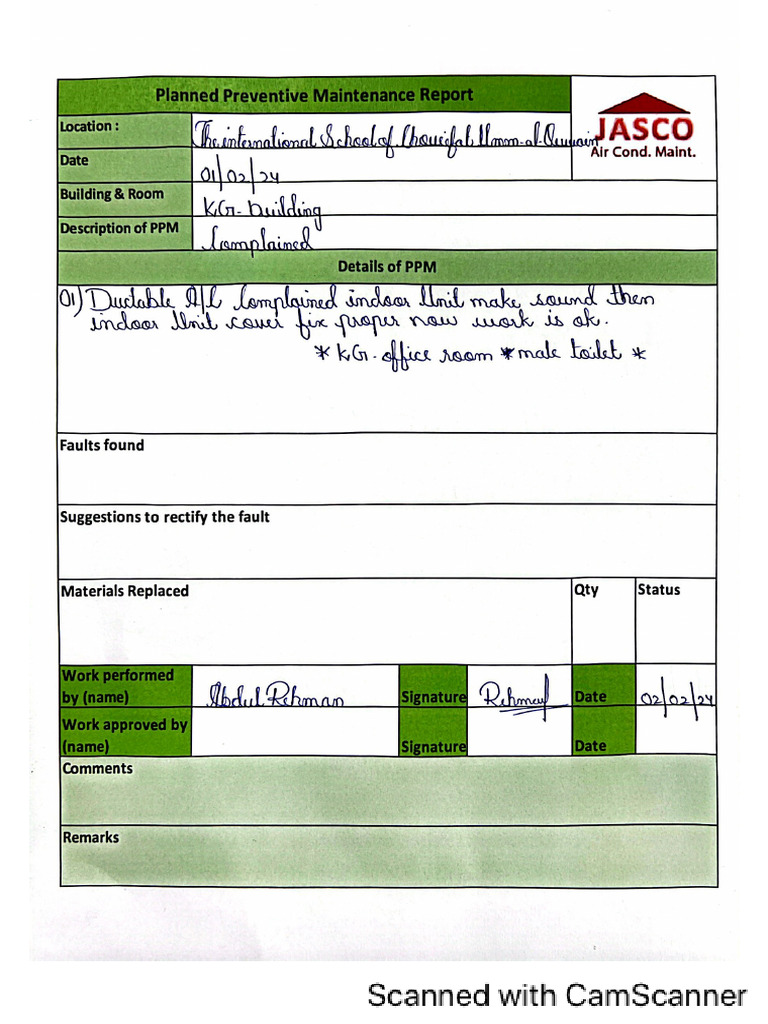 Planned Preventive Maintenance Report
JASCO
Air Cond. Maint.
Location : The international School of Choueifat Umm-al-Quwain
Date 01/02/24
Building & Room KG-building
Description of PPM Complained
Details of PPM
01) Ductable A/C Complained indoor Unit make sound then
indoor Unit cover fix proper now work is ok.
* KG-office room * male toilet *
Faults found
Suggestions to rectify the fault
Materials Replaced Qty Status
Work performed
by (name) Abdul Rehman Signature Rehman Date 02/02/24
Work approved by
(name) Signature Date
Comments
Remarks
Scanned with CamScanner